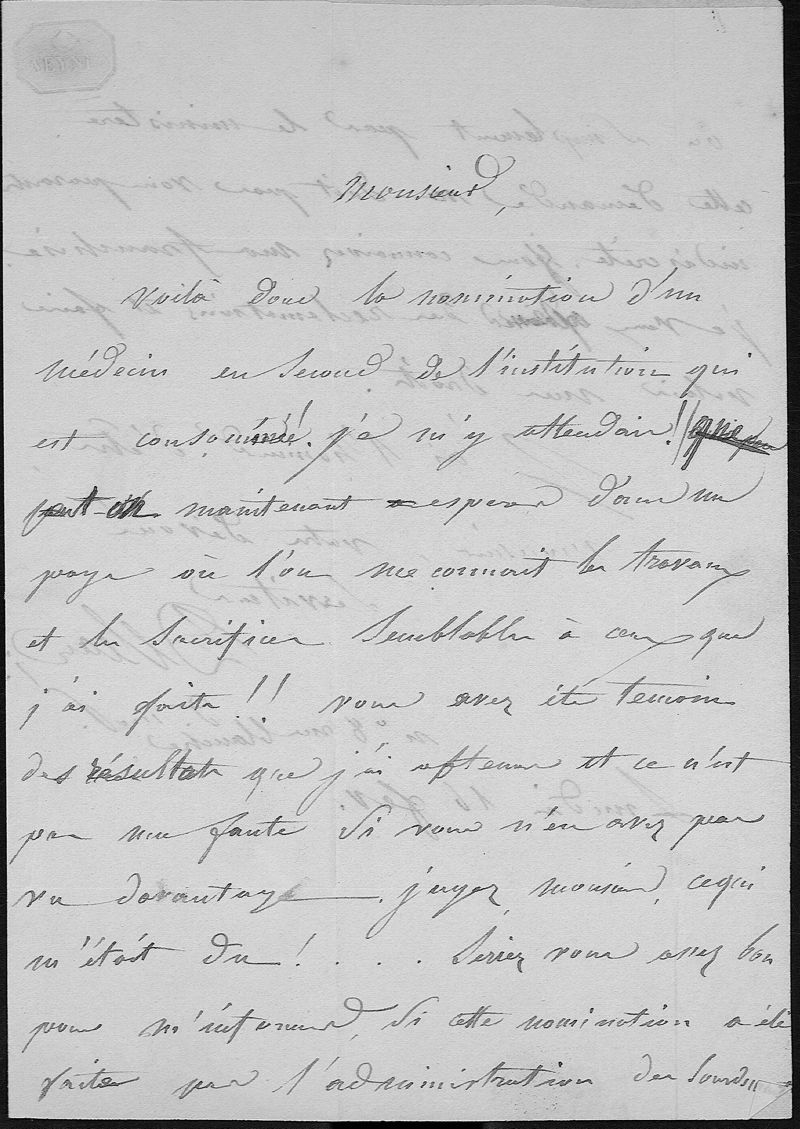 Monsieur,
Voilà donc la nomination d'un
médecin en second de l'institution qui
est consommé! je m'y attendais!
maintenant esperer dans un
pays où l'on méconnoit les travaux
et les sacrifices semblables à ceux que
j'ai faits!! vous avez été temoin
des résultats que j'ai obtenus et ce n'est
pas ma faute si vous n'en avez pas
vu davantage. jugez, monsieur, ce qui
m'étoit du! . . . . Seriez vous assez bon
pour m'informer, si cette nomination a été
faite par l'administration des Sourds